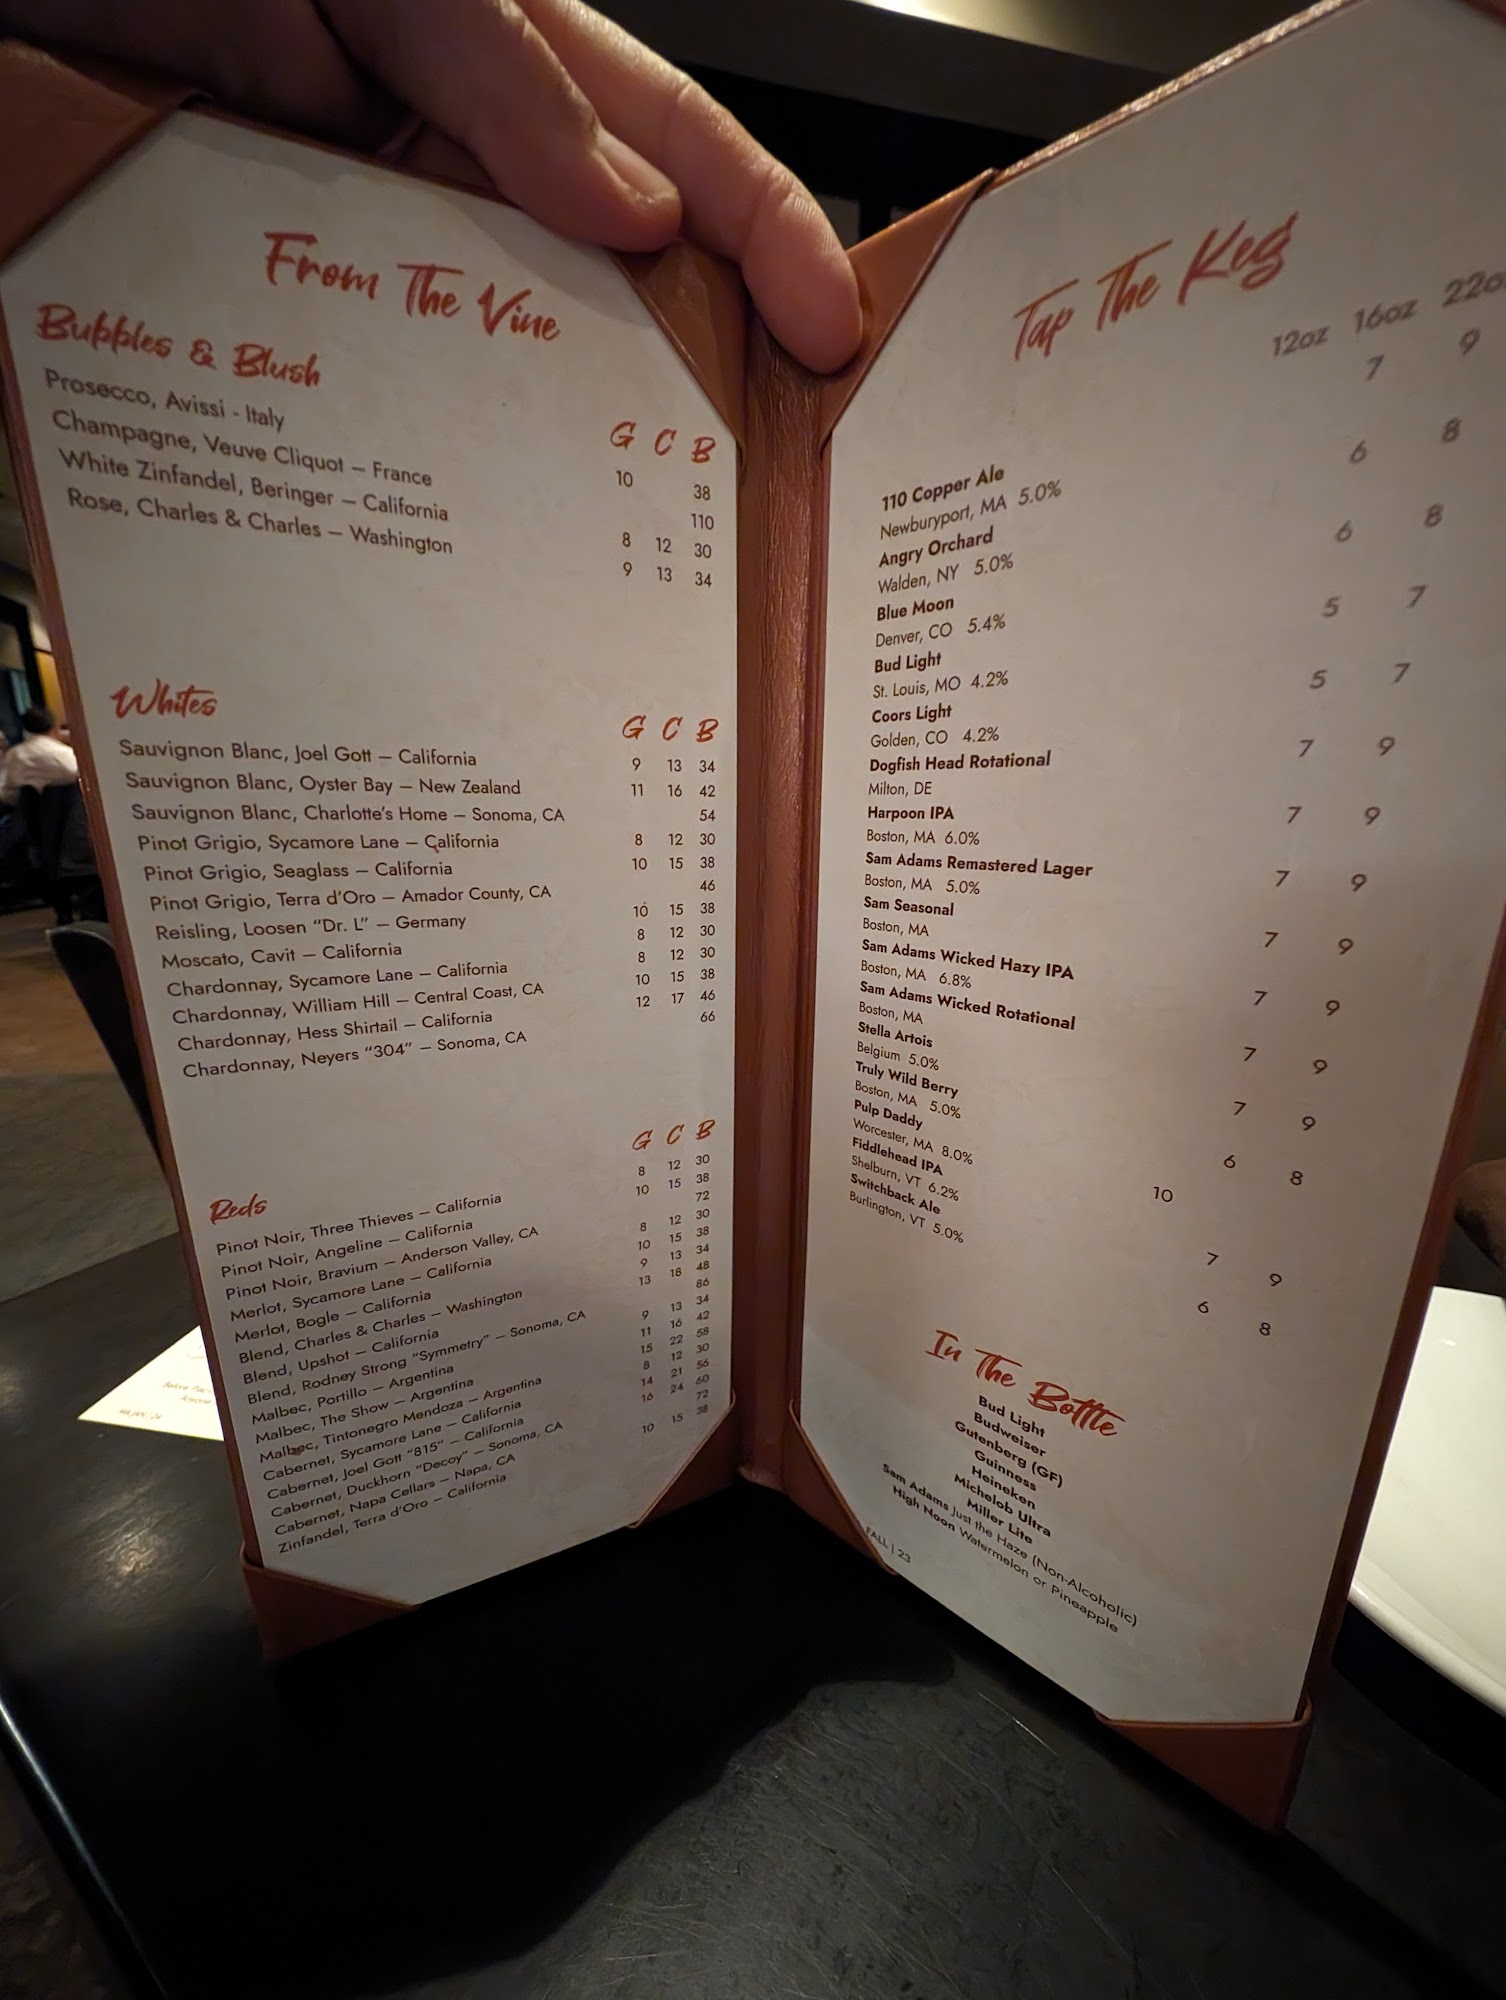 From The Vine
Bubbles & Blush
G C B
Prosecco, Avissi - Italy 10 38
Champagne, Veuve Cliquot – France 110
White Zinfandel, Beringer – California 8 12 30
Rose, Charles & Charles – Washington 9 13 34
Whites
G C B
Sauvignon Blanc, Joel Gott – California 9 13 34
Sauvignon Blanc, Oyster Bay – New Zealand 11 16 42
Sauvignon Blanc, Charlotte's Home – Sonoma, CA 54
Pinot Grigio, Sycamore Lane – California 8 12 30
Pinot Grigio, Seaglass – California 10 15 38
Pinot Grigio, Terra d'Oro – Amador County, CA 46
Reisling, Loosen "Dr. L" – Germany 10 15 38
Moscato, Cavit – California 8 12 30
Chardonnay, Sycamore Lane – California 8 12 30
Chardonnay, William Hill – Central Coast, CA 10 15 38
Chardonnay, Hess Shirtail – California 12 17 46
Chardonnay, Neyers "304" – Sonoma, CA 66
Reds
G C B
Pinot Noir, Three Thieves – California 8 12 30
Pinot Noir, Angeline – California 10 15 38
Pinot Noir, Bravium – Anderson Valley, CA 72
Merlot, Sycamore Lane – California 8 12 30
Merlot, Bogle – California 10 15 38
Blend, Charles & Charles – Washington 9 13 34
Blend, Upshot – California 13 18 48
Blend, Rodney Strong "Symmetry" – Sonoma, CA 86
Malbec, Portillo – Argentina 9 13 34
Malbec, The Show – Argentina 11 16 42
Malbec, Tintonegro Mendoza – Argentina 15 22 58
Cabernet, Sycamore Lane – California 8 12 30
Cabernet, Joel Gott "815" – California 14 21 56
Cabernet, Duckhorn "Decoy" – Sonoma, CA 16 24 60
Cabernet, Napa Cellars – Napa, CA 72
Zinfandel, Terra d'Oro – California 10 15 38
Tap The Keg
12oz 16oz 22oz
110 Copper Ale 7 9
Newburyport, MA 5.0%
Angry Orchard 6 8
Walden, NY 5.0%
Blue Moon 6 8
Denver, CO 5.4%
Bud Light 5 7
St. Louis, MO 4.2%
Coors Light 5 7
Golden, CO 4.2%
Dogfish Head Rotational 7 9
Milton, DE
Harpoon IPA 7 9
Boston, MA 6.0%
Sam Adams Remastered Lager 7 9
Boston, MA 5.0%
Sam Seasonal 7 9
Boston, MA
Sam Adams Wicked Hazy IPA 7 9
Boston, MA 6.8%
Sam Adams Wicked Rotational 7 9
Boston, MA
Stella Artois 7 9
Belgium 5.0%
Truly Wild Berry 6 8
Boston, MA 5.0%
Pulp Daddy 10
Worcester, MA 8.0%
Fiddlehead IPA 7 9
Shelburn, VT 6.2%
Switchback Ale 6 8
Burlington, VT 5.0%
In The Bottle
Bud Light
Budweiser
Gutenberg (GF)
Guinness
Heineken
Michelob Ultra
Miller Lite
Sam Adams Just the Haze (Non-Alcoholic)
High Noon Watermelon or Pineapple
FALL | 23